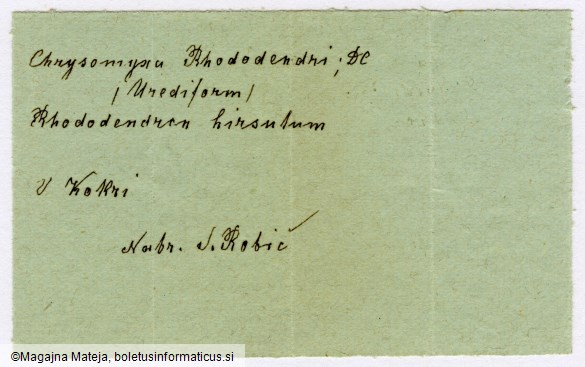 Chrysomyxa Rhododendri, DC
(Urediform)
Rhododendron hirsutum
V Kokri
Nabr. S. Robič
©Magajna Mateja, boletusinformaticus.si